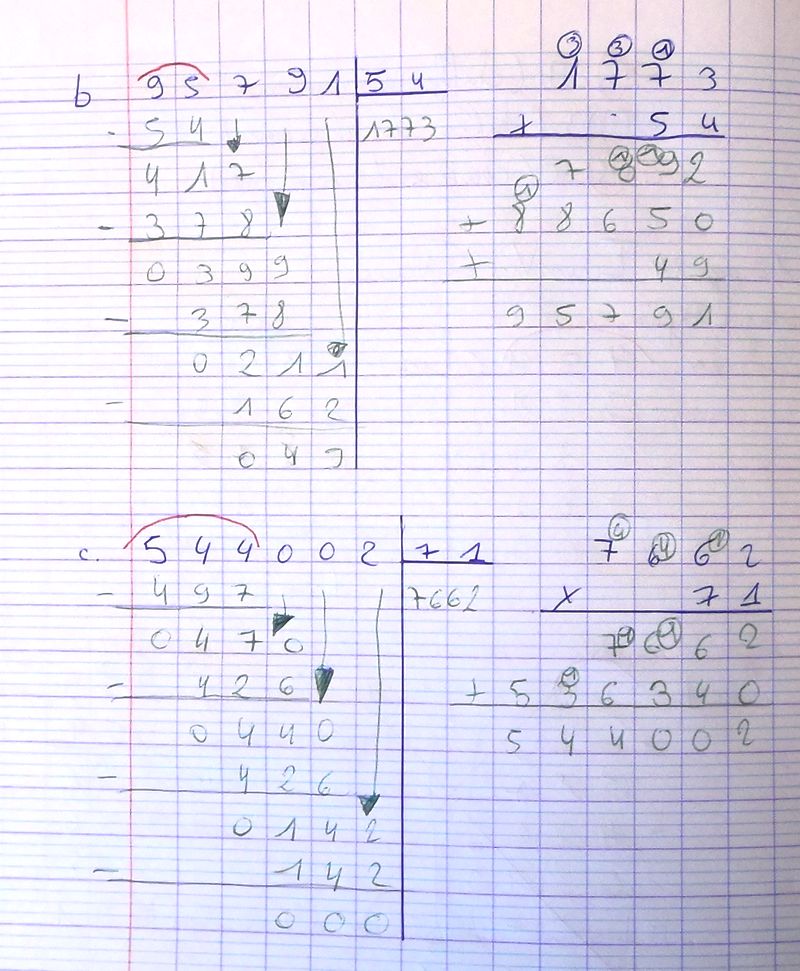 b 95791 54
- 54 1773
417
- 378
0399
- 378
0211
- 162
049
3 3 1
1773
x 54
7092
1
+ 88650
+ 49
95791
c. 544002 71
- 497 7662
0470
- 426
0440
- 426
0142
- 142
000
4 4 1
7662
x 71
7662
+ 536340
544002